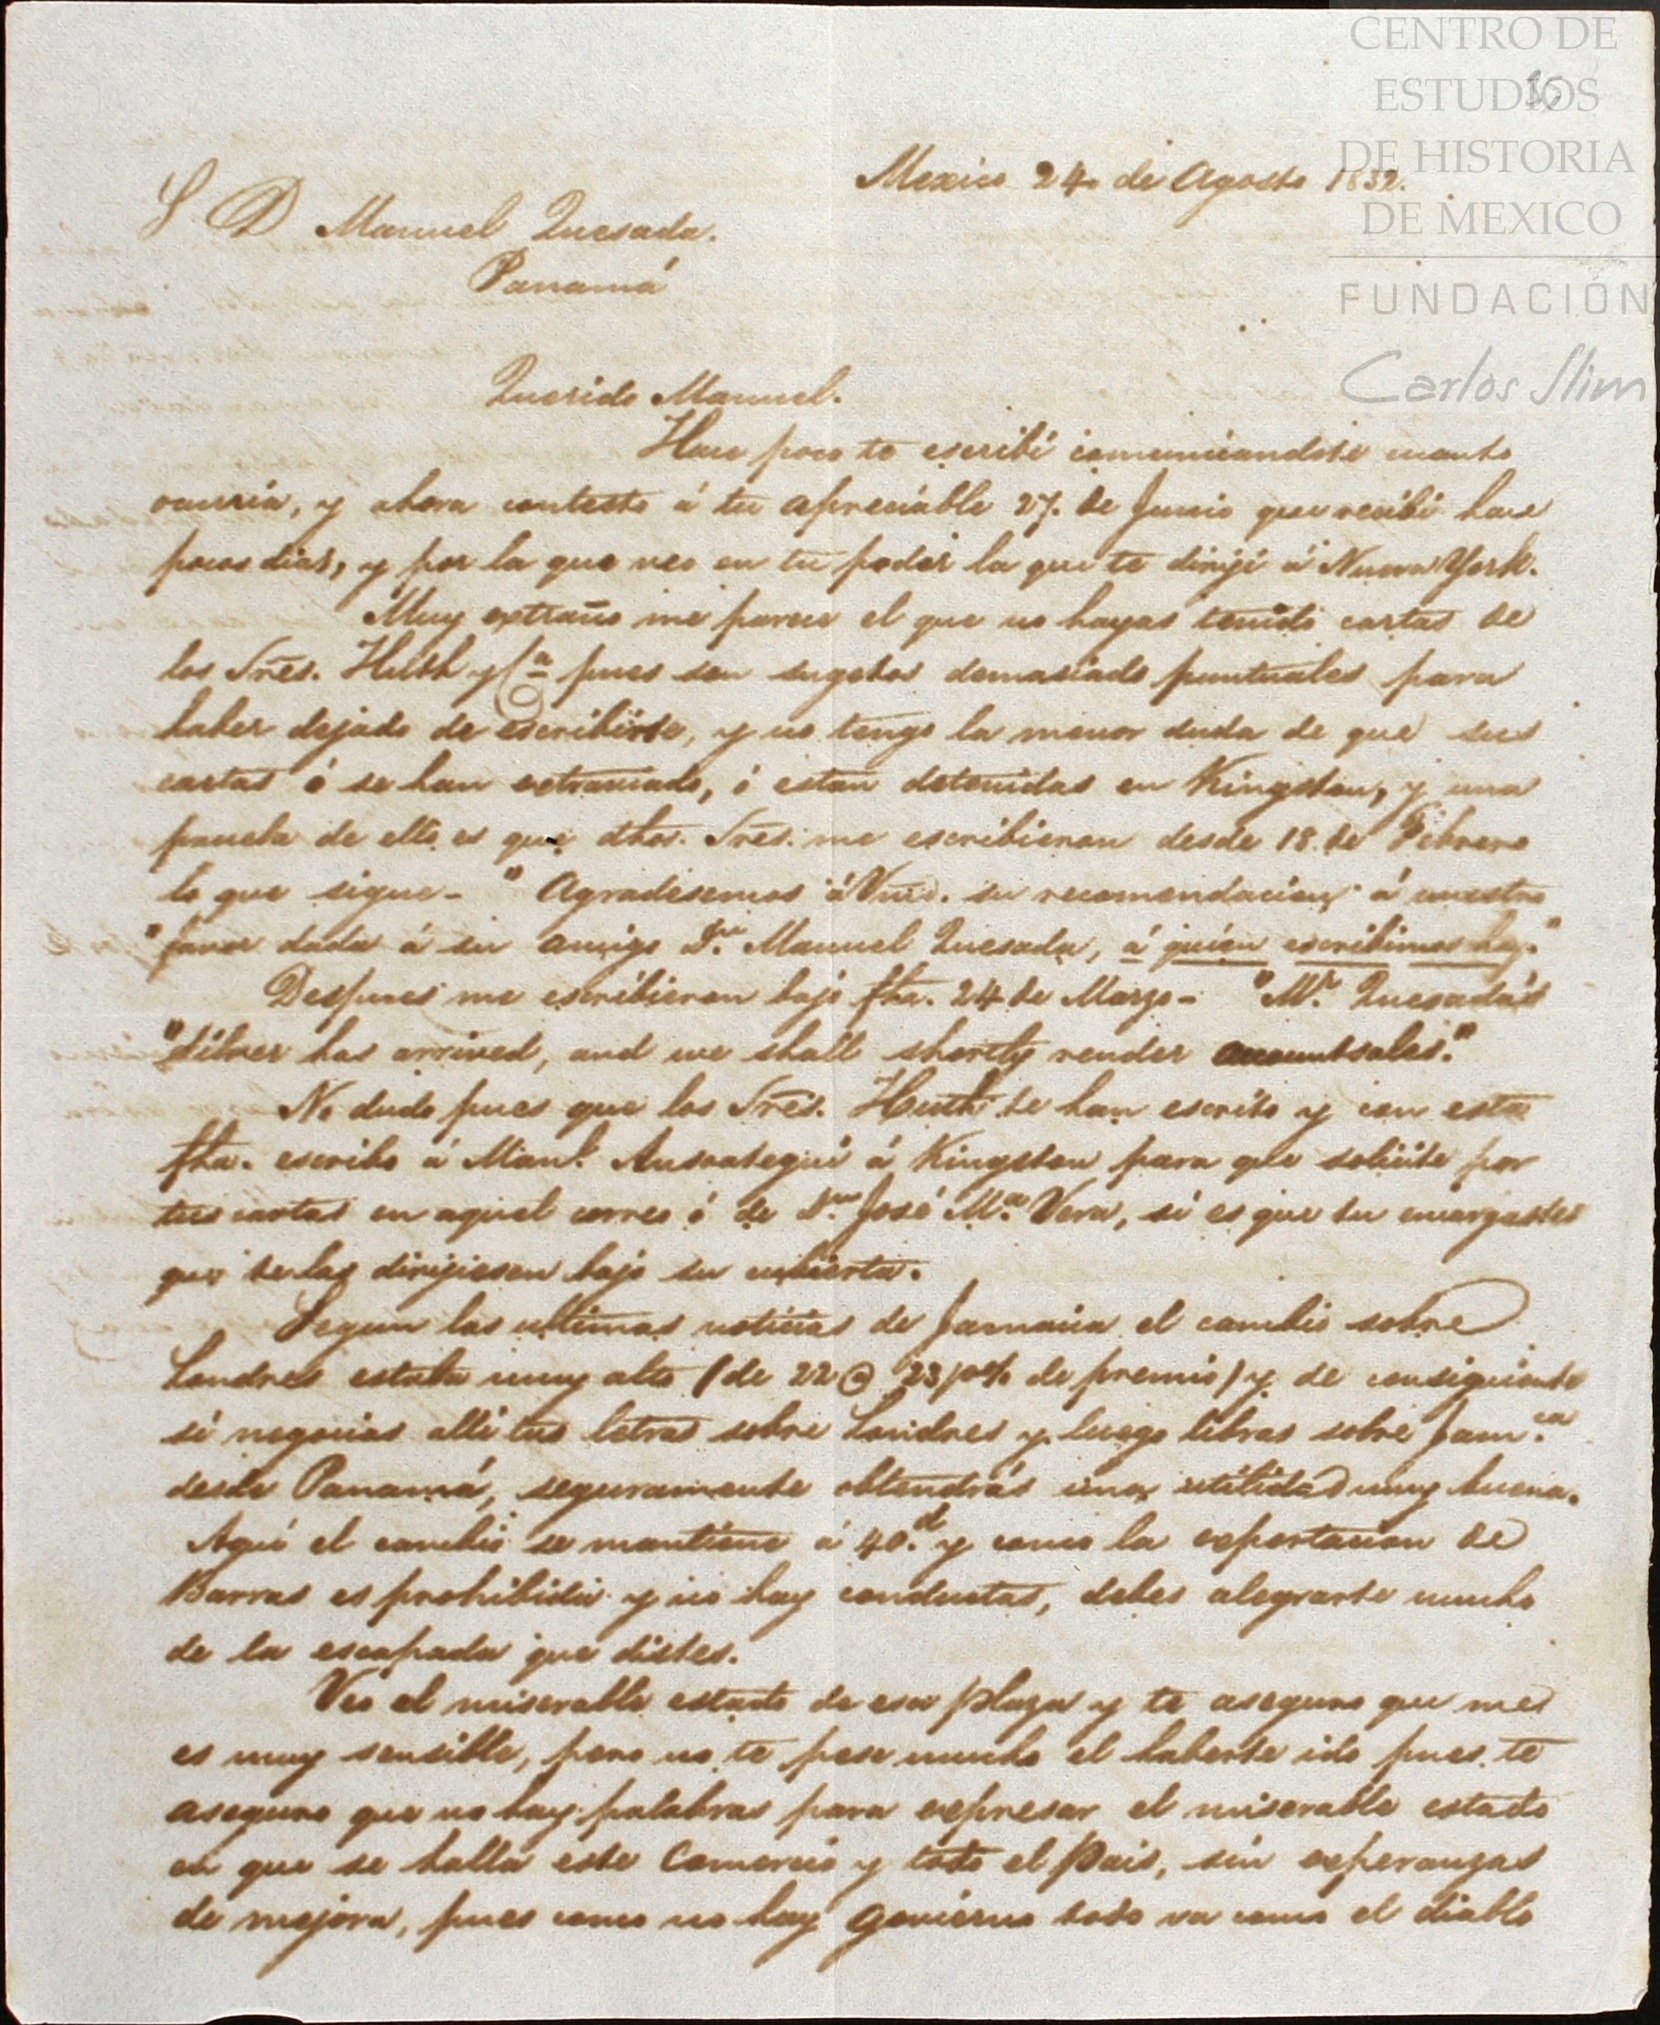 CENTRO DE
ESTUDIOS
DE HISTORIA
DE MEXICO
FUNDACIÓN
Carlos Slim
Mexico 24 de Agosto 1832.
S. D Manuel Quesada.
Panamá
Querido Manuel.
Hace poco te escribí comunicandote cuanto
ocurria, y ahora contesto á tu apreciable 27. de Junio que recibi hace
pocos dias, y por la que veo en tu poder la que te dirijí á Nueva York.
Muy extraño me parece el que no hayas tenido cartas de
los Sres. Huth y Ca pues son sugetos demasiado puntuales para
haber dejado de escribirte, y no tengo la menor duda de que sus
cartas ó se han extraviado, ó estan detenidas en Kingston, y una
prueba de ello es que dhos. Sres. me escribieron desde 18. de Febrero
lo que sigue - "Agradesemos á Vmd. su recomendacion á nuestro
"favor dada á su amigo Dn. Manuel Quesada, á quien escribimos hoy."
Despues me escribieron bajo fha. 24 de Marzo - "Mr. Quesada's
"silver has arrived, and we shall shortly render accountsales."
No dudo pues que los Sres. Huth te han escrito y con esta
fha. escribo á Manl. Ansoategui á Kingston para que solicite por
tus cartas en aquel correo ó de Dn. José Ma. Vera, si es que tu encargastes
que te las dirijiesen bajo su cubierta.
Segun las ultimas noticias de Jamaica el cambio sobre
Londres estaba muy alto (de 22 @ 23 po% de premio) y de consiguiente
si negocias allí tus letras sobre Londres y luego libras sobre Jamca.
desde Panamá, seguramente obtendrás una utilidad muy buena.
Aqui el cambio se mantiene á 40d. y como la exportacion de
Barras es prohibida y no hay conductas, debes alegrarte mucho
de la escapada que distes.
Veo el miserable estado de esa plaza y te aseguro que me
es muy sensible, pero no te pese mucho el haberte ido pues te
aseguro que no hay palabras para expresar el miserable estado
en que se halla este Comercio y todo el Pais, sin esperanzas
de mejora, pues como no hay Govierno todo va como el diablo